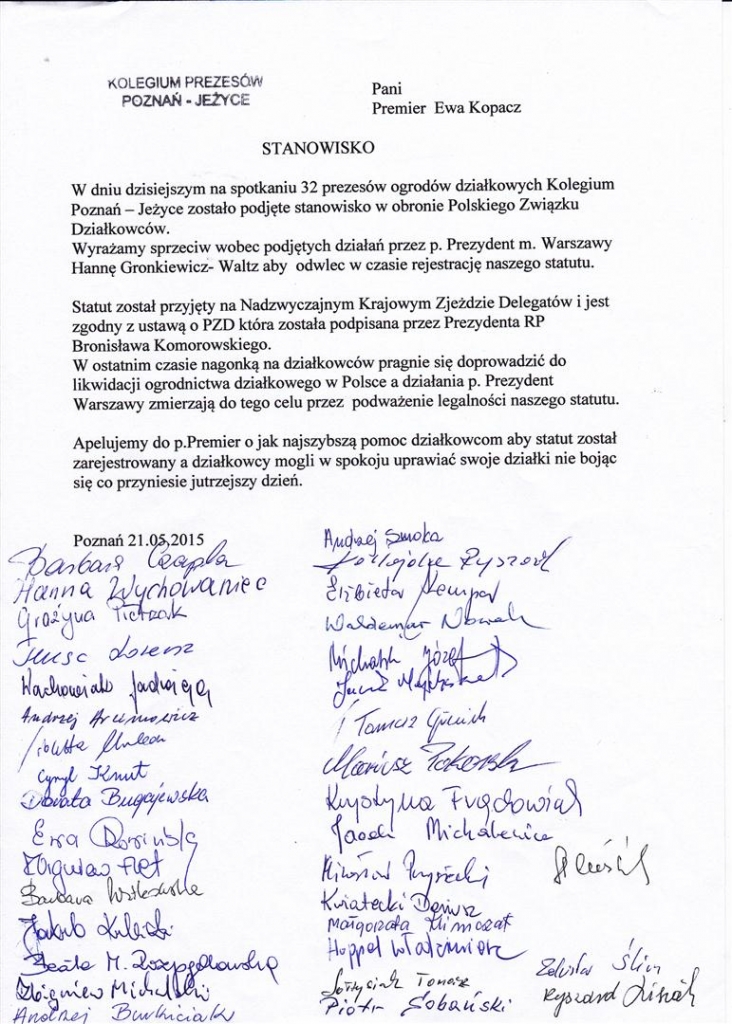 KOLEGIUM PREZESÓW
POZNAŃ - JEŻYCE
Pani
Premier Ewa Kopacz
STANOWISKO
W dniu dzisiejszym na spotkaniu 32 prezesów ogrodów działkowych Kolegium
Poznań – Jeżyce zostało podjęte stanowisko w obronie Polskiego Związku
Działkowców.
Wyrażamy sprzeciw wobec podjętych działań przez p. Prezydent m. Warszawy
Hannę Gronkiewicz- Waltz aby odwlec w czasie rejestrację naszego statutu.
Statut został przyjęty na Nadzwyczajnym Krajowym Zjeździe Delegatów i jest
zgodny z ustawą o PZD która została podpisana przez Prezydenta RP
Bronisława Komorowskiego.
W ostatnim czasie nagonką na działkowców pragnie się doprowadzić do
likwidacji ogrodnictwa działkowego w Polsce a działania p. Prezydent
Warszawy zmierzają do tego celu przez podważenie legalności naszego statutu.
Apelujemy do p.Premier o jak najszybszą pomoc działkowcom aby statut został
zarejestrowany a działkowcy mogli w spokoju uprawiać swoje działki nie bojąc
się co przyniesie jutrzejszy dzień.
Poznań 21.05.2015
Barbara Czapla
Hanna Wychowaniec
Grażyna Pietrzak
Wachowiak Jadwiga
Andrzej
Cyryl Knut
Danuta Bugajewska
Ewa
Zbigniew Flet
Barbara
Jakub
Beata M.
Zbigniew Michalski
Andrzej
Andrzej Smoka
Ryszard
Elżbieta
Waldemar Nowak
Michalik Józef
Tomasz
Mariusz
Krystyna
Jacek
Mirosław
Kwiatecki Dariusz
Małgorzata
Hoppel Włodzimierz
Tomasz
Piotr Sobański
Zdzisław Śliw
Ryszard